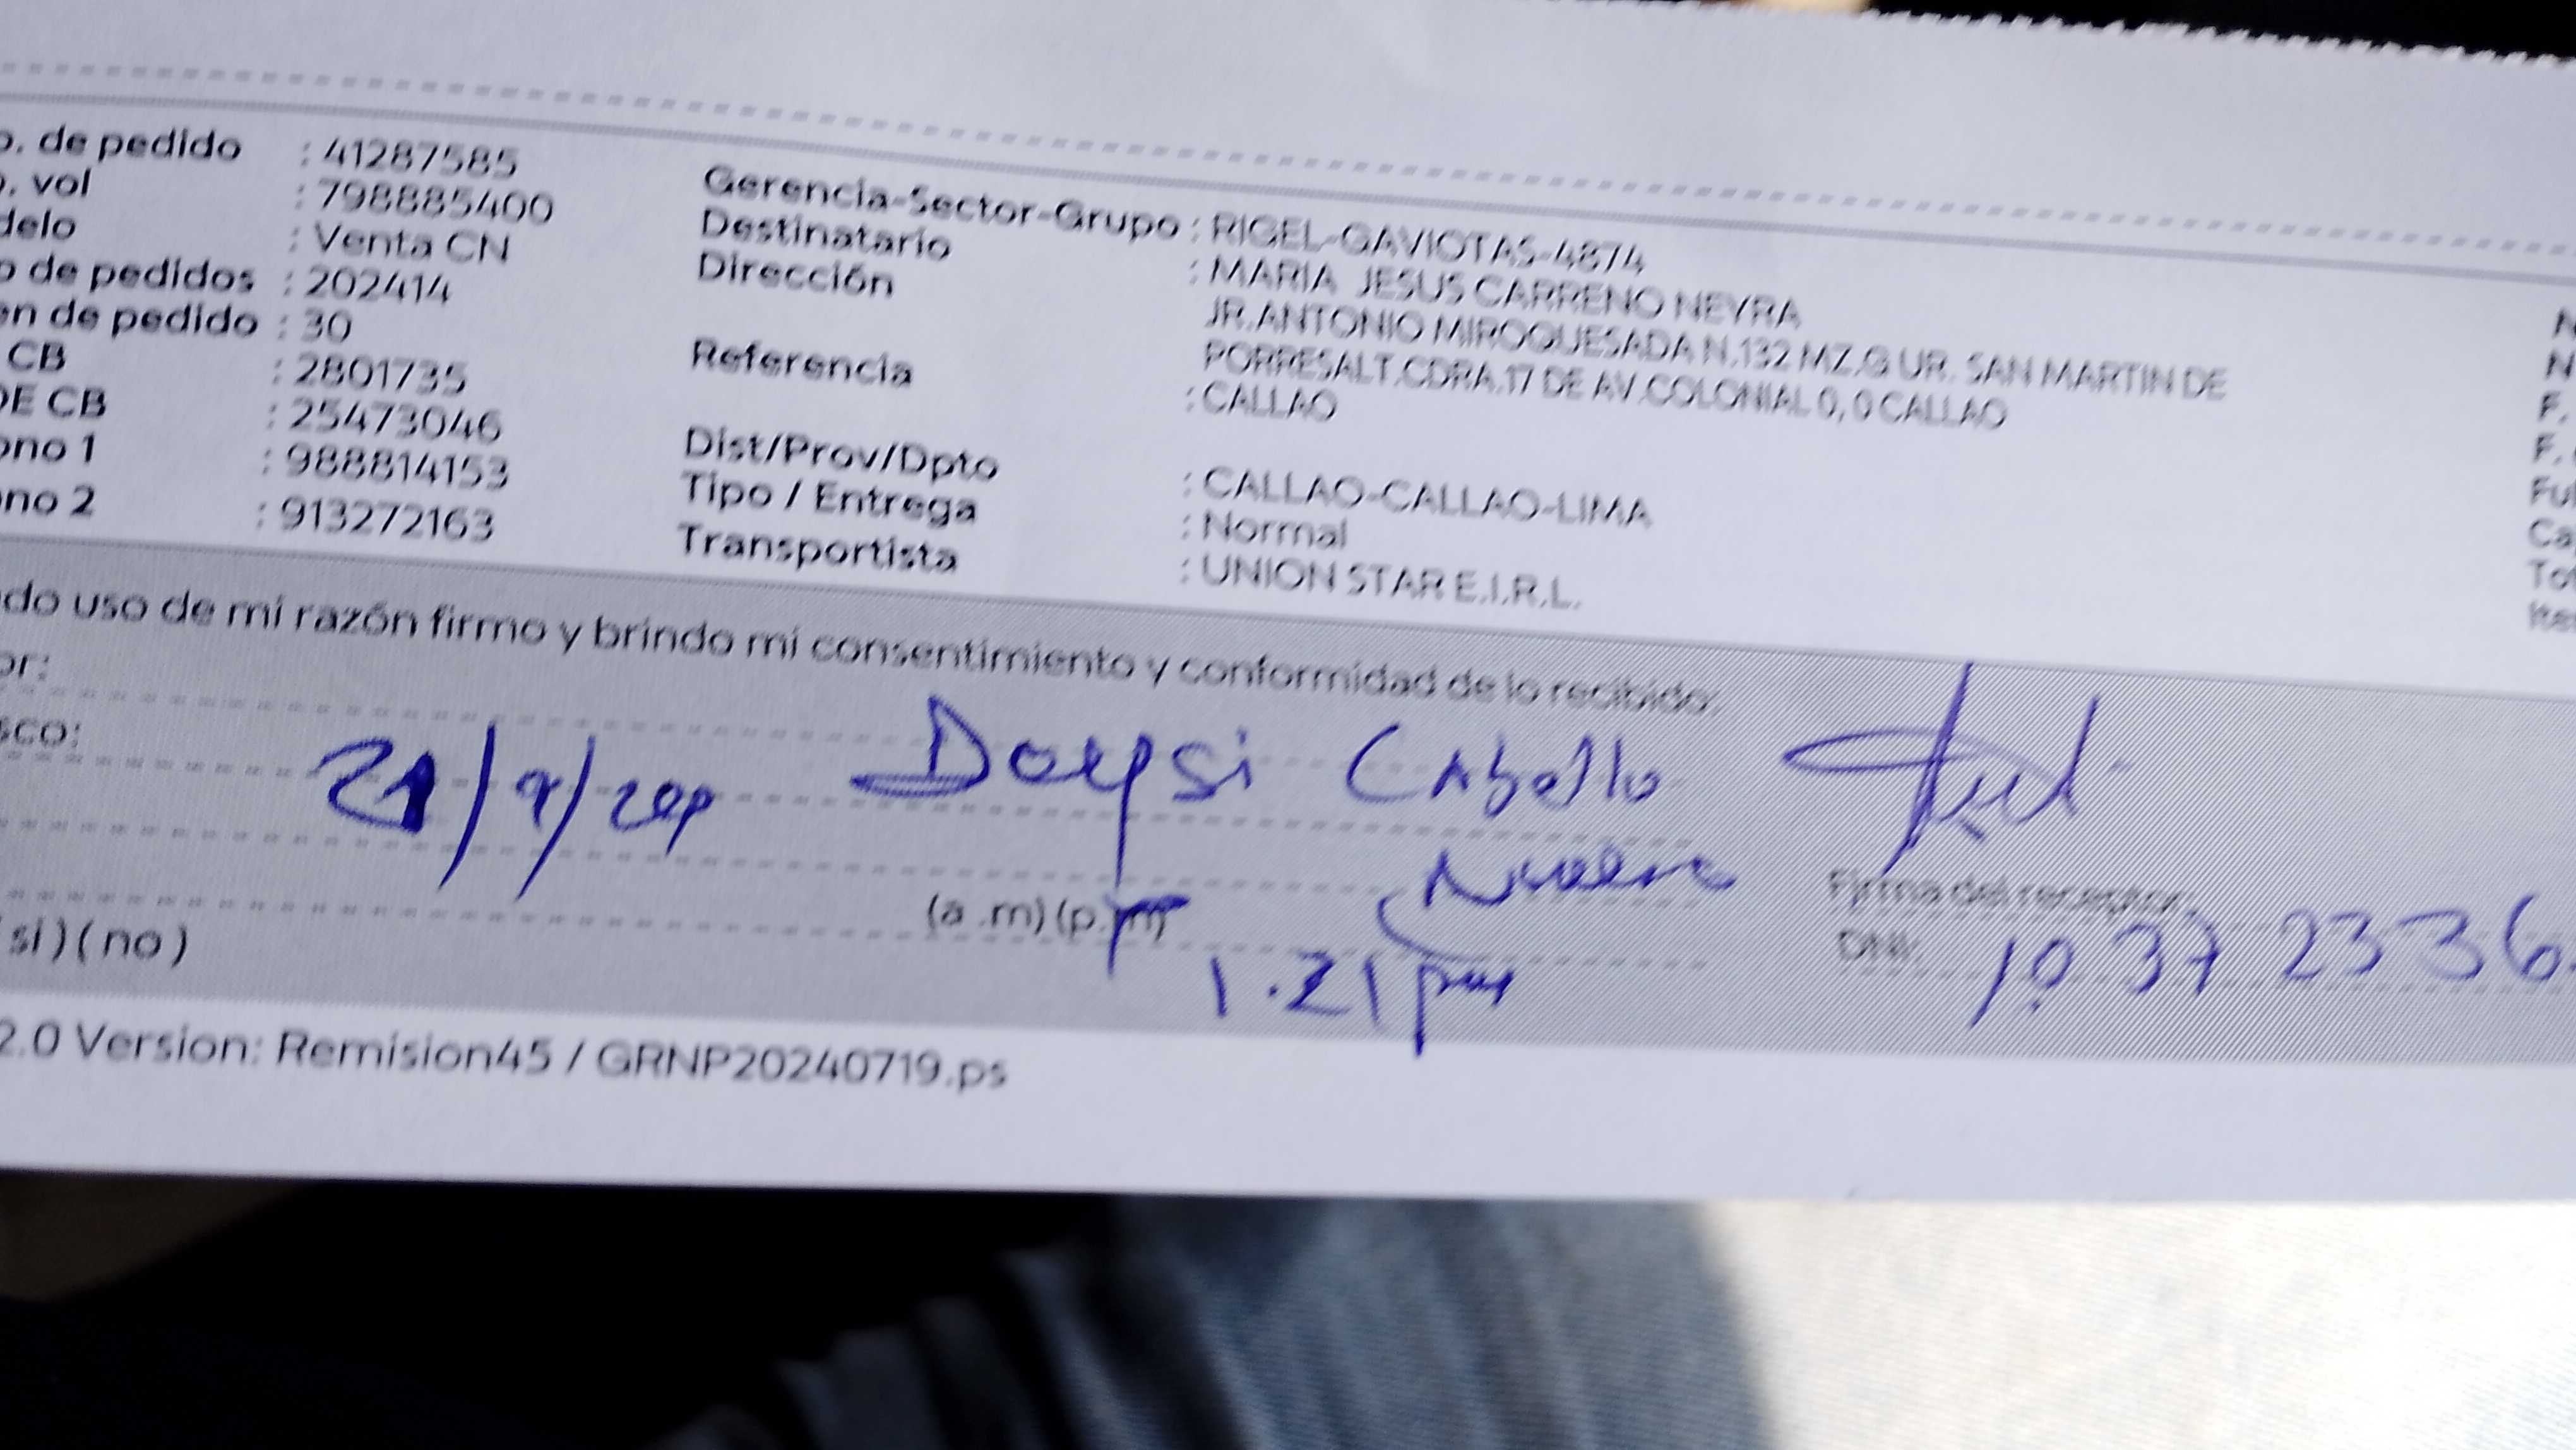 o. de pedido : 41287585
o. vol : 798885400
delo : Venta CN
o de pedidos : 202414
en de pedido : 30
CB : 2801735
DE CB : 25473046
ono 1 : 988814153
ono 2 : 913272163
Gerencia-Sector-Grupo : RIGEL-GAVIOTAS-4874
Destinatario : MARIA JESUS CARRENO NEYRA
Dirección JR.ANTONIO MIROQUESADA N.132 MZ.G UR. SAN MARTIN DE
PORRESALT.CDRA.17 DE AV.COLONIAL 0, 0 CALLAO
Referencia : CALLAO
Dist/Prov/Dpto : CALLAO-CALLAO-LIMA
Tipo / Entrega : Normal
Transportista : UNION STAR E.I.R.L.
N
N
F.
F.
Ful
Ca
Tot
Ite
do uso de mi razón firmo y brindo mi consentimiento y conformidad de lo recibido.
or:
sco:
Cabello
(a .m) (p.m)
1.21 pm
si ) ( no )
Firma del receptor
DNI: 10 37 23 36
2.0 Version: Remision45 / GRNP20240719.ps